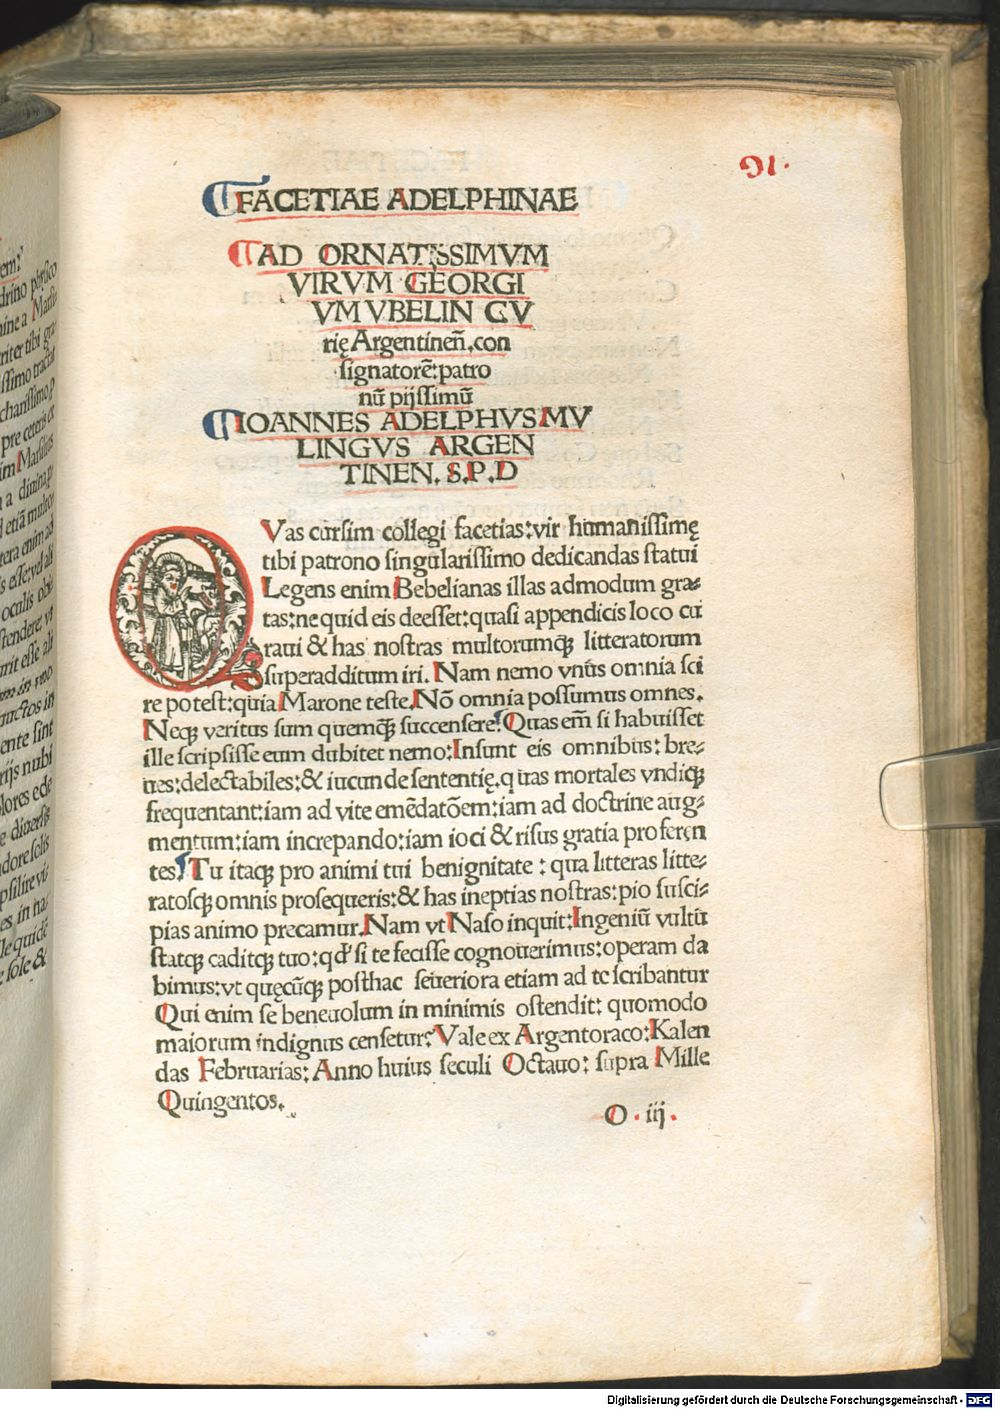 91.
FACETIAE ADELPHINAE
AD ORNATISSIMVM
VIRVM GEORGI
VM VBELIN CV
rię Argentineñ.con
signatorē:patro
nū pijssimū
IOANNES ADELPHVS MV
LINGVS ARGEN
TINEN. S.P.D
QVas cursim collegi facetias:vir humanissimę
tibi patrono singularissimo dedicandas statui
Legens enim Bebelianas illas admodum gra-
tas:ne quid eis deesset:quasi appendicis loco cu
raui & has nostras multorumqȝ litteratorum
superadditum iri. Nam nemo vnus omnia sci
re potest:quia Marone teste.Nō omnia possumus omnes.
Neqȝ veritus sum quemqȝ succensere.Quas em̄ si habuisset
ille scripsisse eum dubitet nemo:Insunt eis omnibus: bre-
ues:delectabiles:& iucunde sententię.quas mortales vndiqȝ
frequentant:iam ad vite emēdatōem:iam ad doctrine aug-
mentum:iam increpando:iam ioci & risus gratia proferen
tes.Tu itaqȝ pro animi tui benignitate : qua litteras litte-
ratosqȝ omnis prosequeris:& has ineptias nostras:pio susci-
pias animo precamur.Nam vt Naso inquit:Ingeniū vultu
statqȝ caditqȝ tuo:qd' si te fecisse cognouerimus:operam da
bimus:vt quęcūqȝ posthac seueriora etiam ad te scribantur
Qui enim se beneuolum in minimis ostendit: quomodo
maiorum indignus censetur.Vale ex Argentoraco:Kalen
das Februarias: Anno huius seculi Octauo: supra Mille
Quingentos.
O . iij .
em:
drino physico
mine a Marsi
riter tibi gra
issimo tractat
charissimo.p
pre ceteris
im Marsilius
a diuina.p
etiā multo
tera enim ad
s esse:vel ali
oculis
stendere: vt
rit esse ali
in vno
in
ente sint
rijs nubi
lores ede
e diuersis
dore solis
psilire vi
es in na
le quidē
e sole &
Digitalisierung gefördert durch die Deutsche Forschungsgemeinschaft - DFG